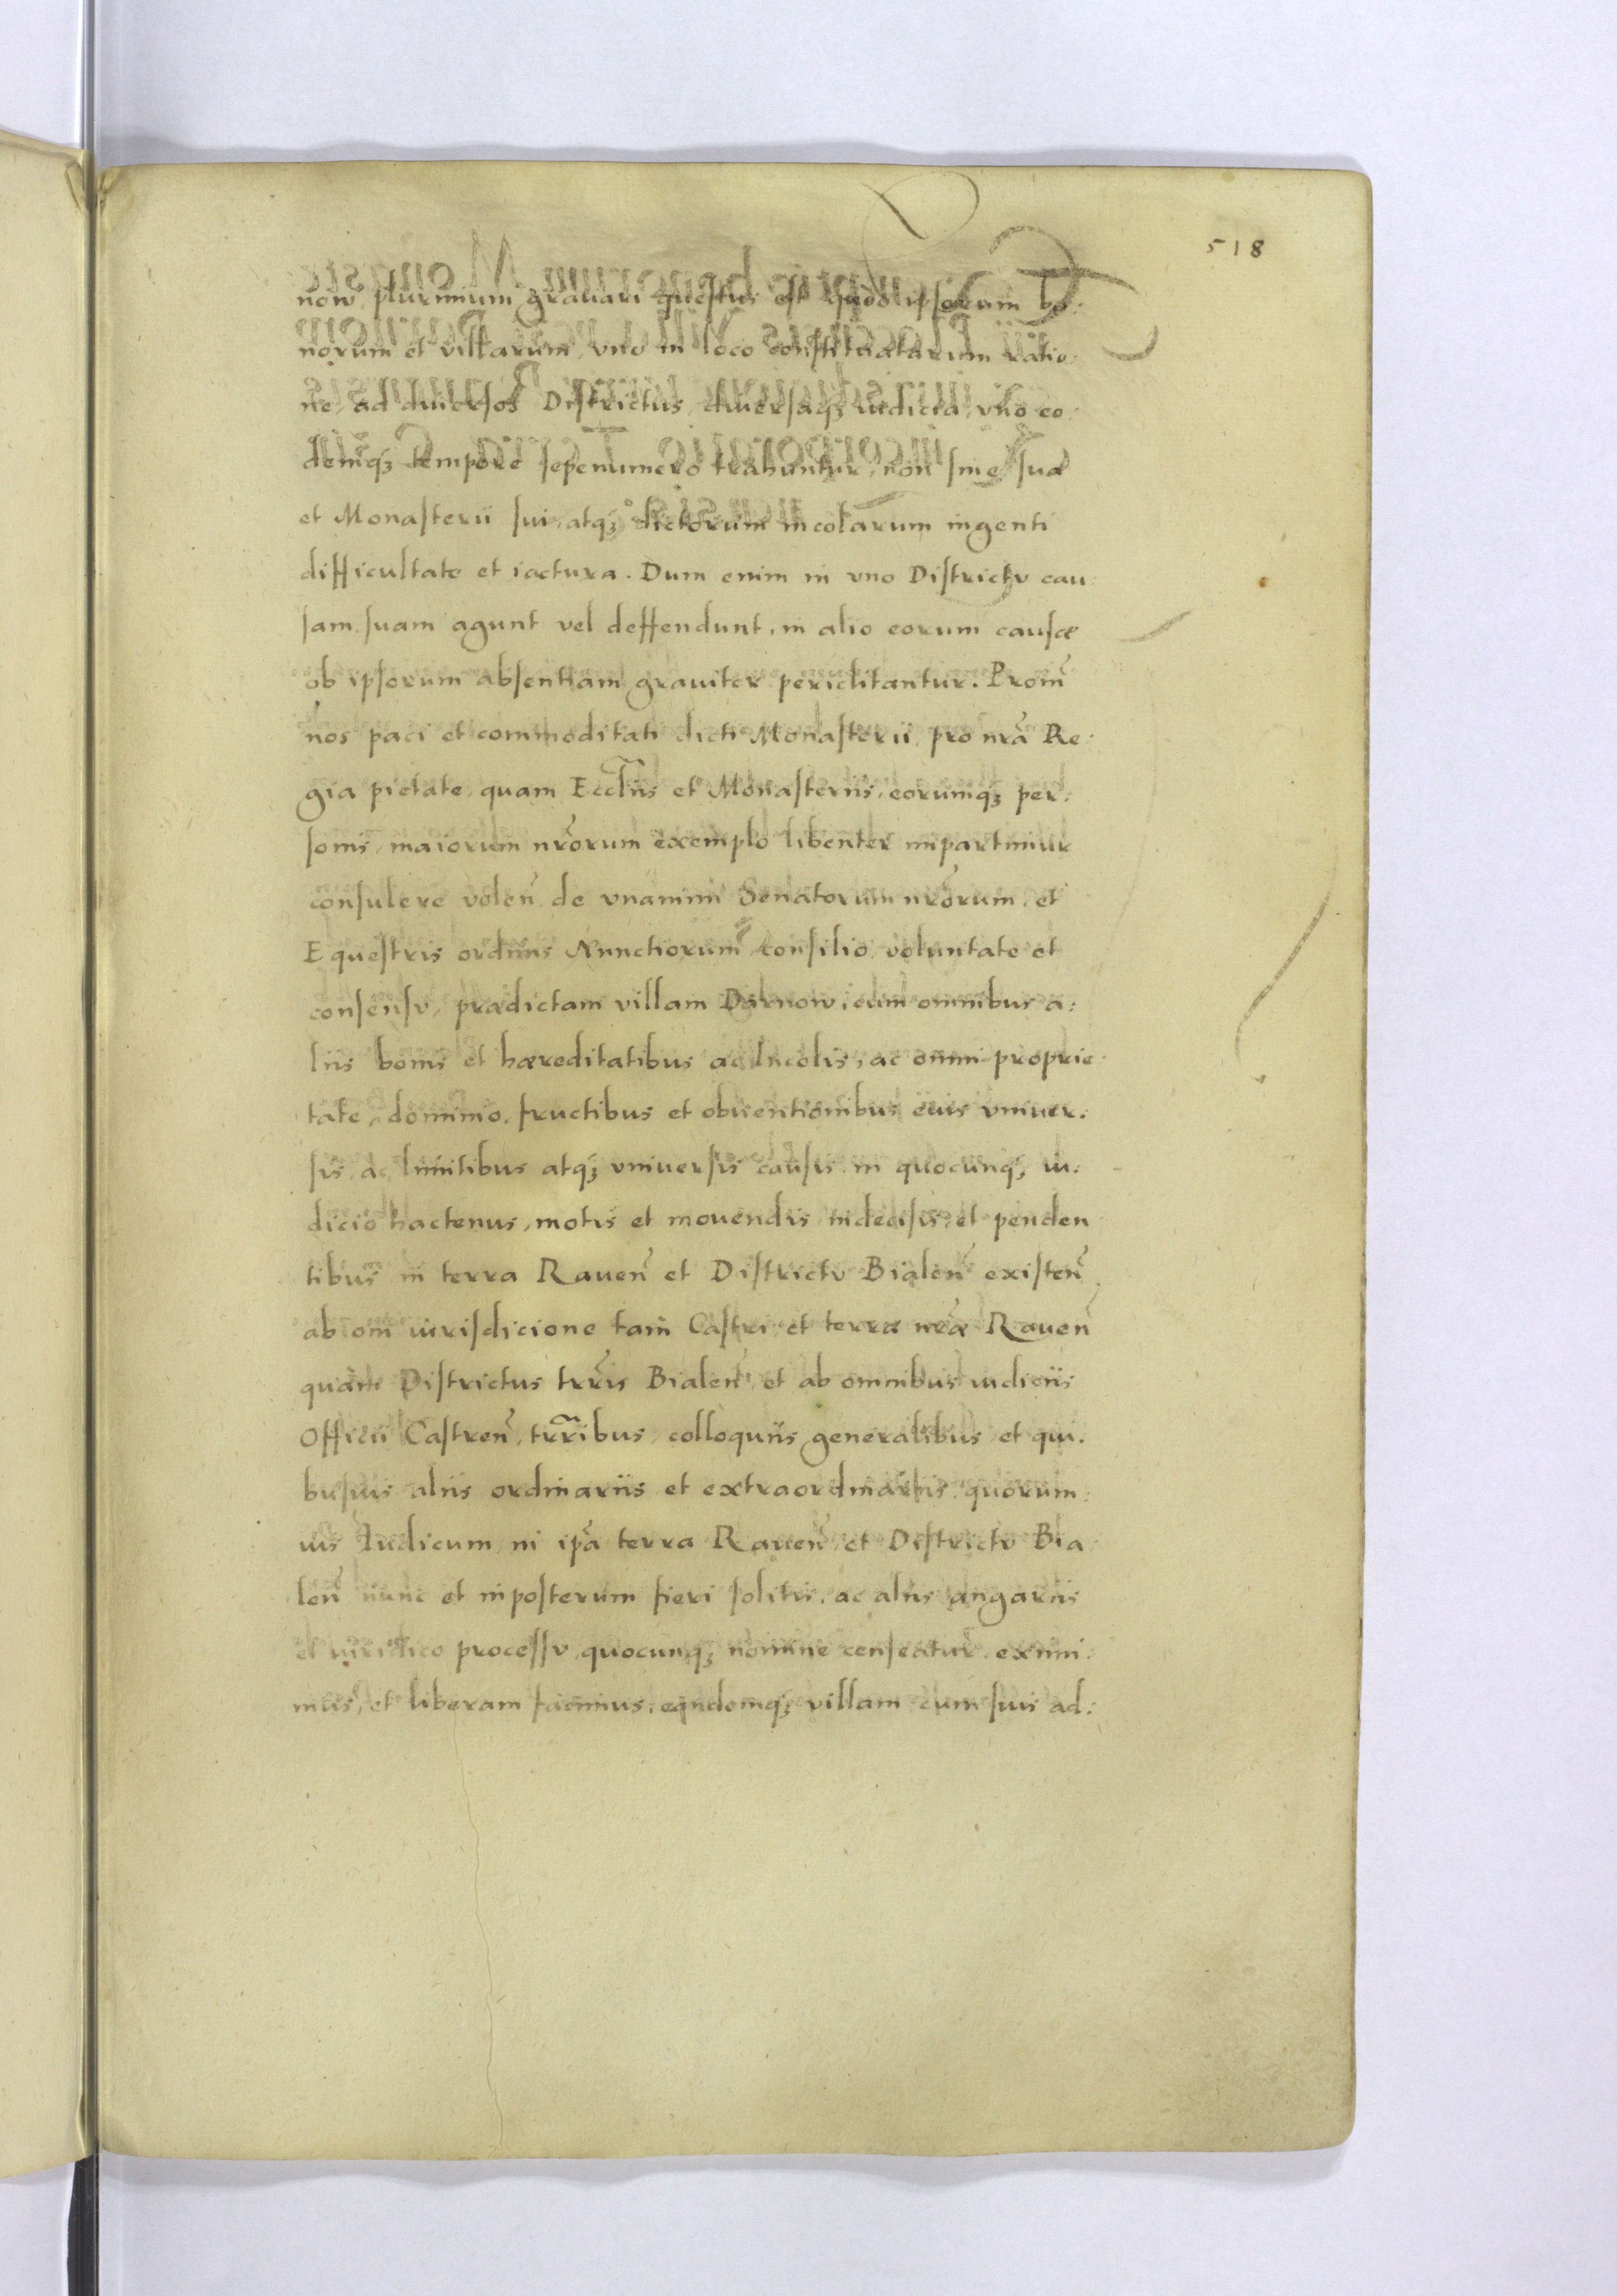 518
now, plurimum grauari questus est quod ipsorum bo:
norum et villarum, vno in loco constitutarum ratio:
ne, ad diuersos Districtus, diuersaq3 iudicia, vno eo:
demq3 tempore sepenumero trahuntur, non sine sua
et Monasterii sui, atq3 dictorum incolarum ingenti
difficultate et iactura. Dum enim in vno Districtu cau:
sam suam agunt vel deffendunt, in alio eorum causæ
ob ipsorum absentiam grauiter periclitantur. Proin̄
nos paci et commoditati dicti Monasterii, pro nr̄a Re:
gia pietate, quam Eccl̄iis et Monasteriis, eorumq3 per:
sonis, maiorum nr̄orum exemplo libenter impartimur
consulere volen̄ de vnanimi Senatorum nr̄orum, et
Equestris ordinis Nunctiorum consilio, voluntate et
consensu, prædictam villam Darnow, cum omnibus a:
liis bonis et hæreditatibus ac Incolis, ac omni proprie:
tate, dominio, fructibus et obuentionibus eius vniuer:
sis, ac limitibus atq3 vniuersis causis in quocunq3 iu:
dicio hactenus, motis et mouendis indecisis, et penden
tibus in terra Rauen̄ et Districtu Bialen̄ existen̄
ab om̄i iurisdicione tam Castri et terræ nr̄æ Rauen̄
quam Districtus trr̄is Bialen̄, et ab omnibus iudiciis
Officii Castren̄, trr̄ibus, colloquiis generalibus et qui:
busuis aliis ordinariis et extraordinariis quorum:
uis Iudicum in ip̄a terra Rauen̄ et Districtu Bia
len̄ nunc et inposterum fieri solitis, ac aliis angariis
et iuridico processu, quocunq3 nomine censeatur eximi:
mus, et liberam facimus, eandemq3 villam cum suis ad: